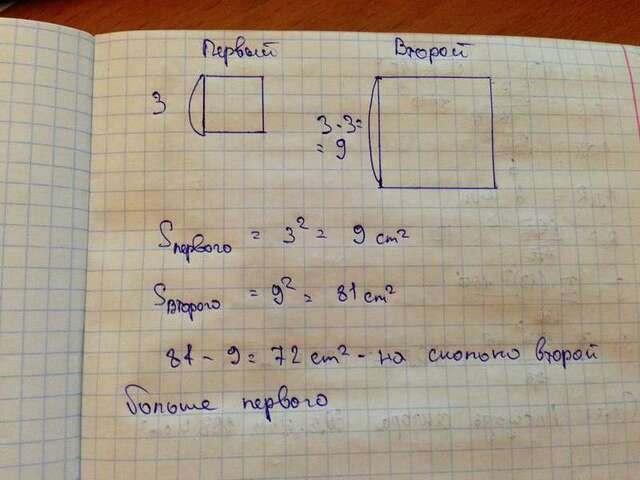 Первый Второй
3
3·3=
= 9
Sпервого = 3² = 9 cm²
Sвторого = 9² = 81 cm²
81 - 9 = 72 cm² - на сколько второй
больше первого